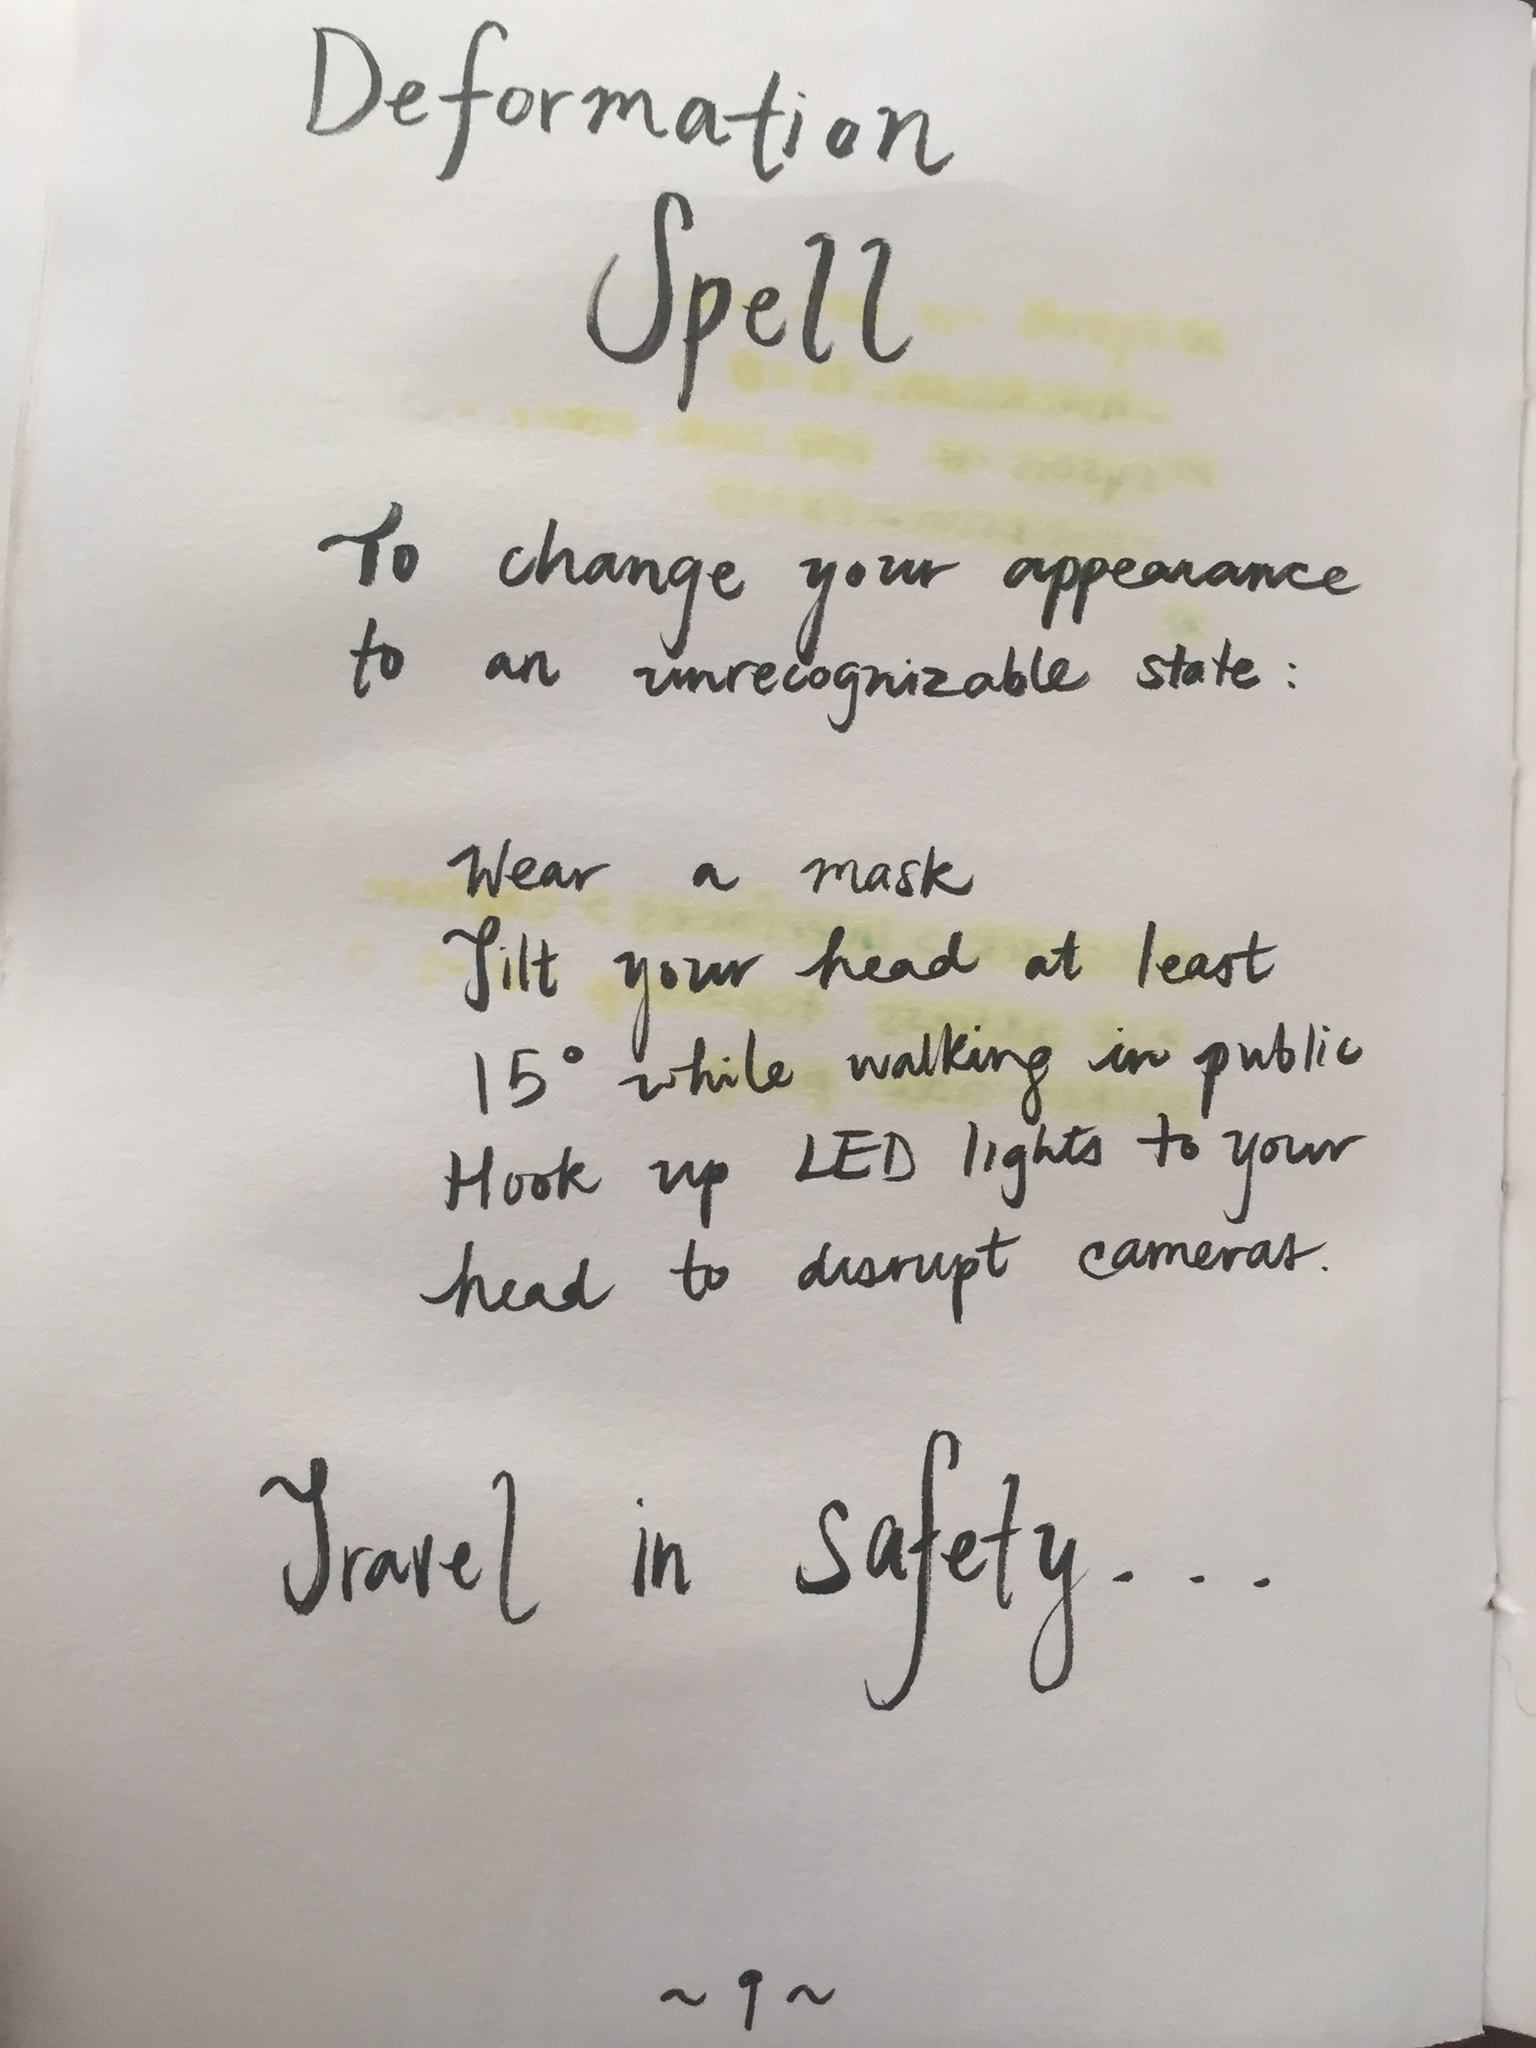 Deformation
Spell
To change your appearance
to an unrecognizable state:
Wear a mask
Tilt your head at least
15° while walking in public
Hook up LED lights to your
head to disrupt cameras.
Travel in safety...
~ 9 ~